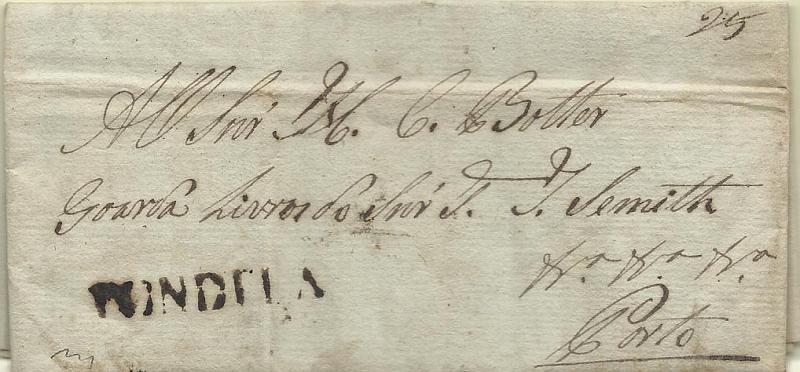 25
Al Snr H. C. Botter
Goarda Livros do Snr J. J. Semith
TONDELA
Porto